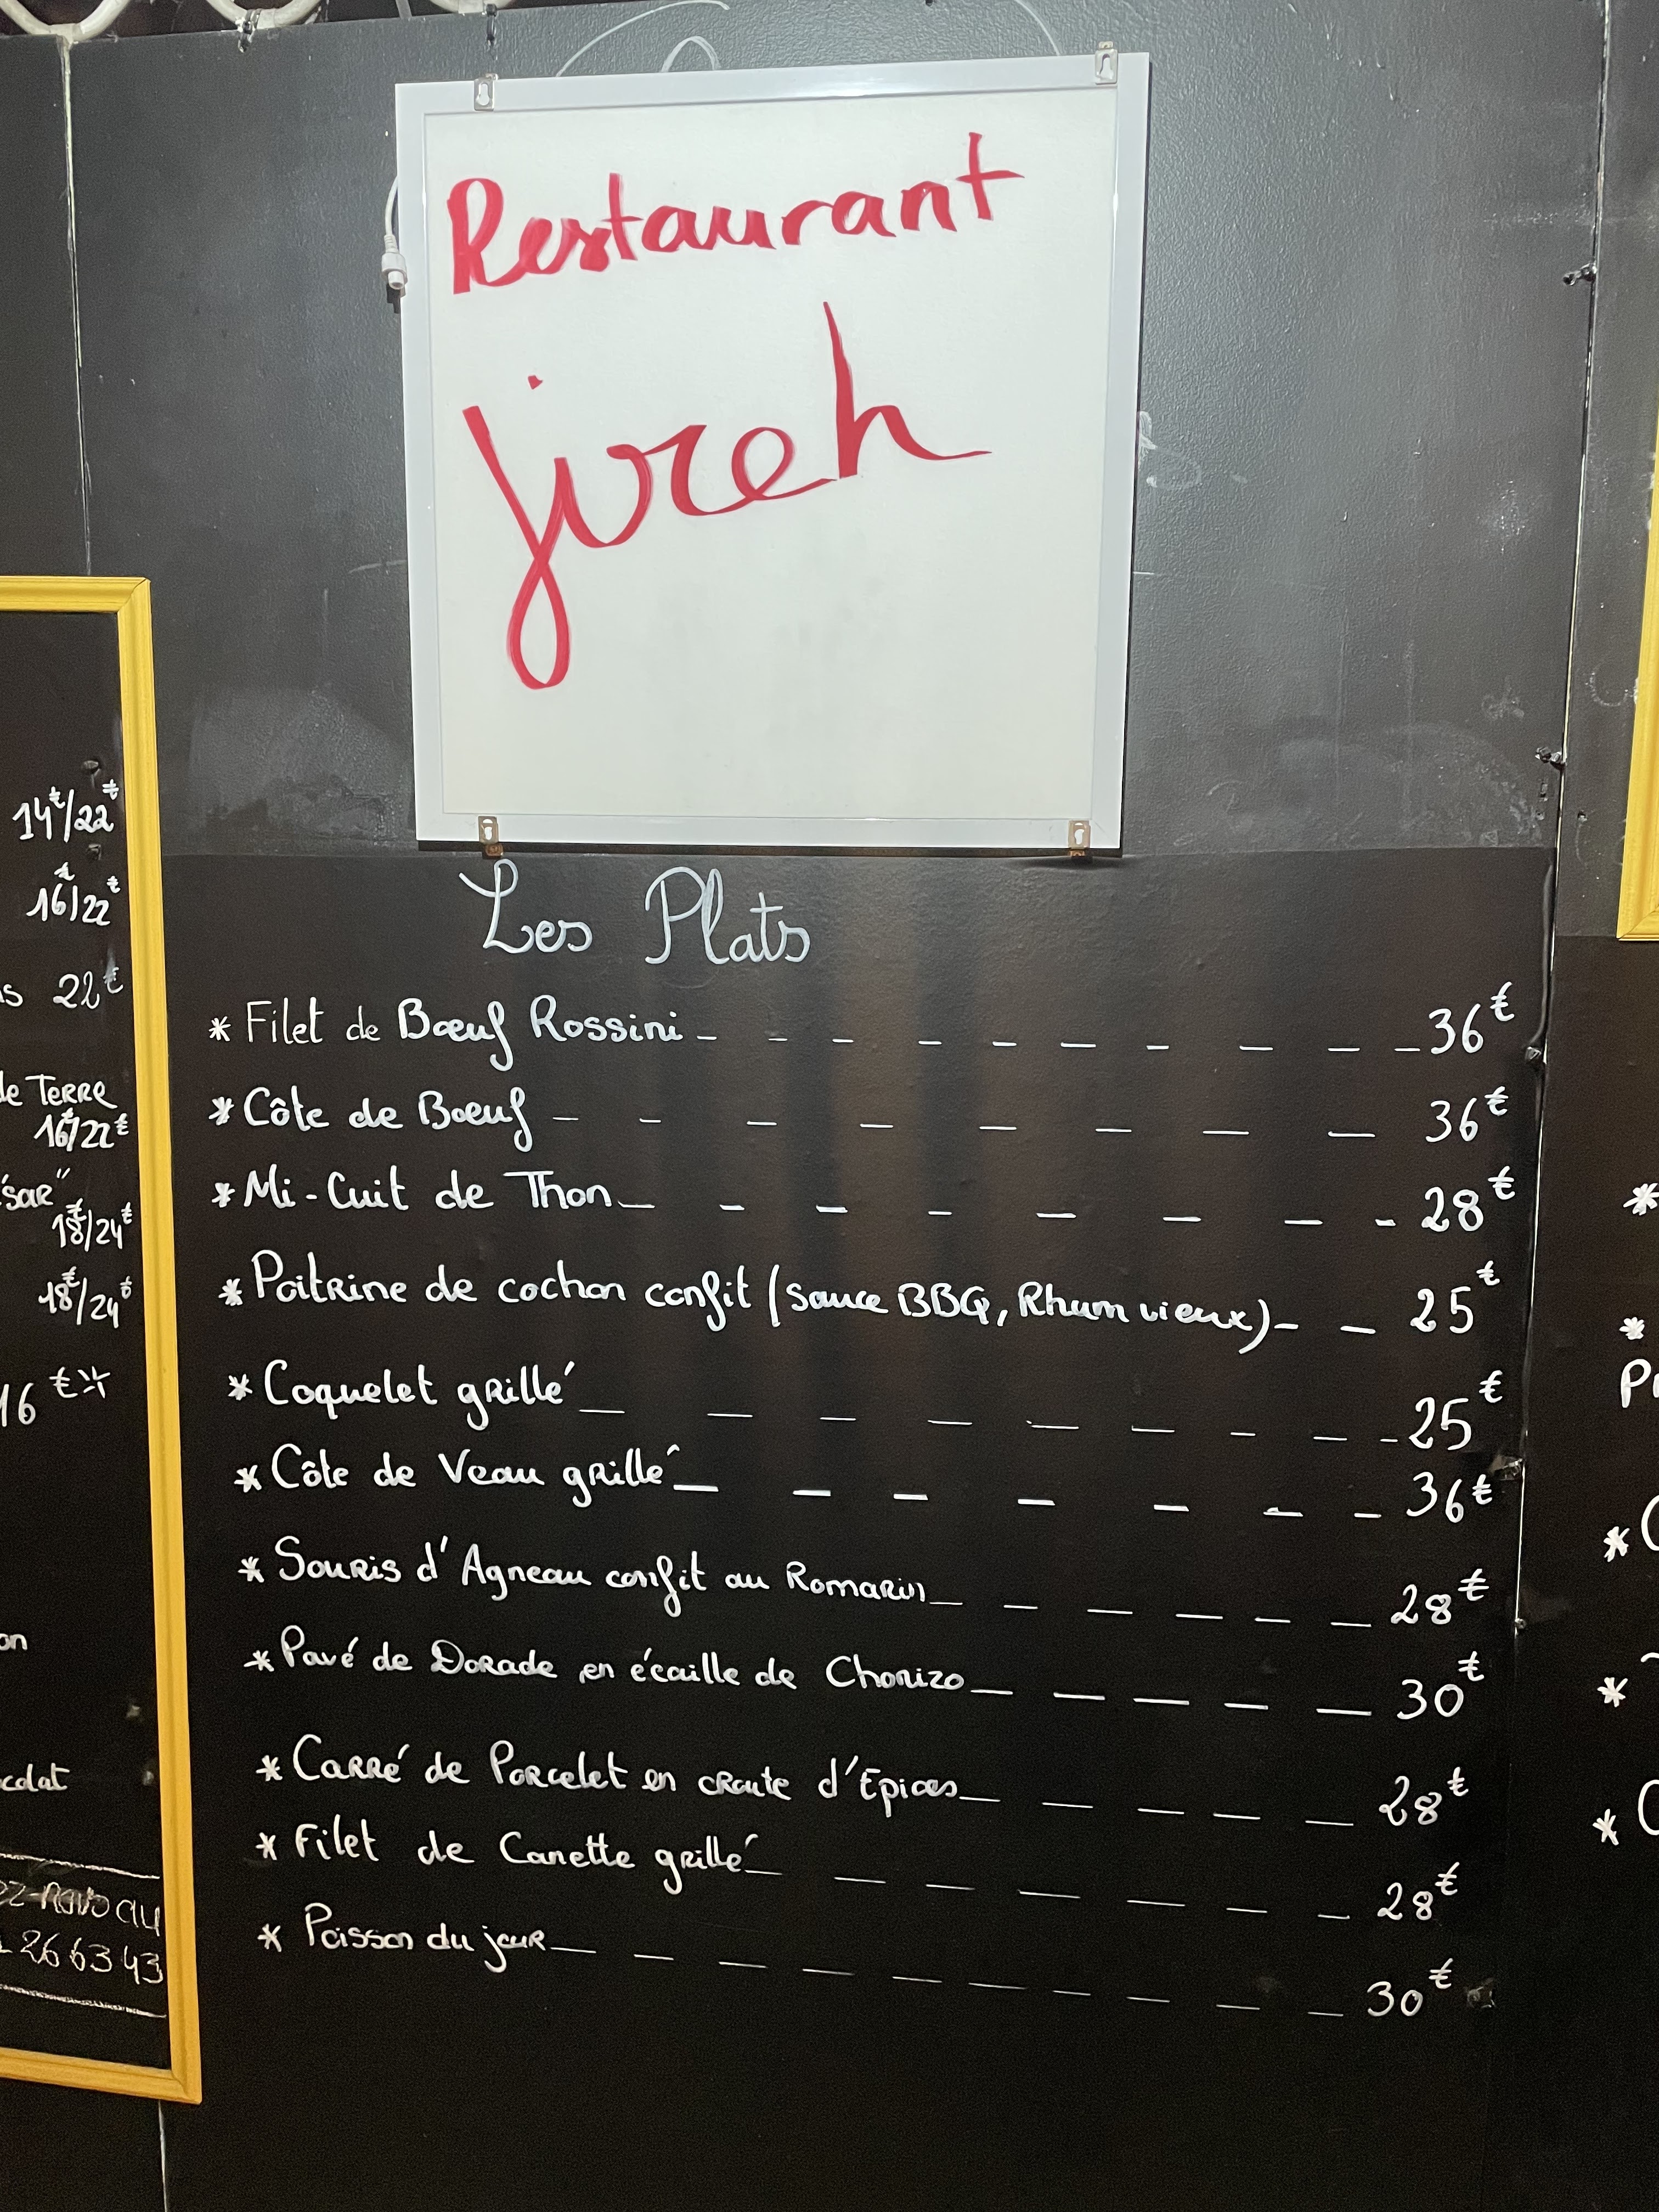 Restaurant
jireh
14€/22€
16€/22€
22€
de Terre
16€/22€
18€/24€
18€/24€
16€
Les Plats
* Filet de Bœuf Rossini - - - - - - - - - - 36€
* Côte de Bœuf - - - - - - - - 36€
* Mi-Cuit de Thon - - - - - - - - 28€
* Poitrine de cochon confit (sauce BBQ, Rhum vieux) - - 25€
* Coquelet grillé - - - - - - - - - 25€
* Côte de Veau grillé - - - - - - - 36€
* Souris d'Agneau confit au Romarin - - - - - - 28€
* Pavé de Dorade en écaille de Chorizo - - - - - 30€
* Carré de Porcelet en croute d'Epices - - - - - 28€
* Filet de Canette grillé - - - - - - - 28€
* Poisson du jour - - - - - - - - - - 30€
26 63 43